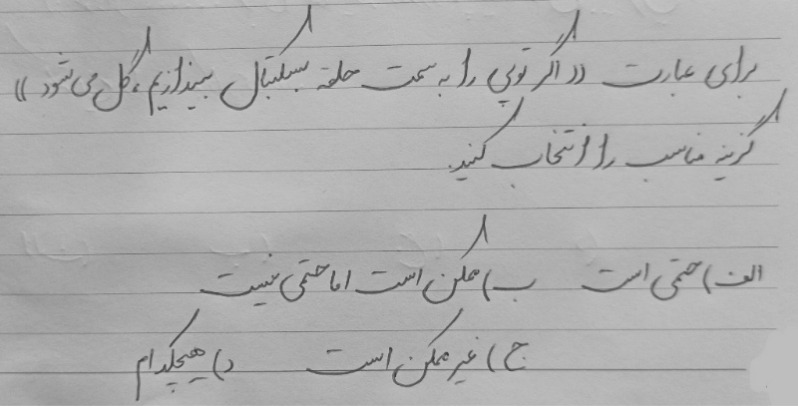 برای عبارت «اگر توپی را به سمت حلقه بسکتبال بیندازیم، گل می‌شود»
گزینه مناسب را انتخاب کنید.
الف) حتمی است ب) ممکن است اما حتمی نیست
ج) غیر ممکن است د) هیچکدام